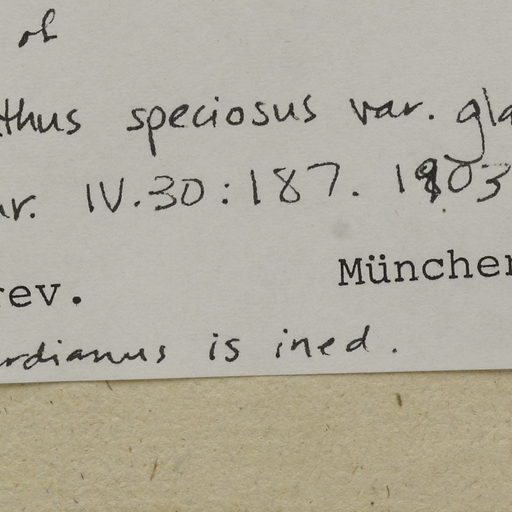 of
thus speciosus var. gla
ur. IV.30:187. 1903
rev. München
rdianus is ined.